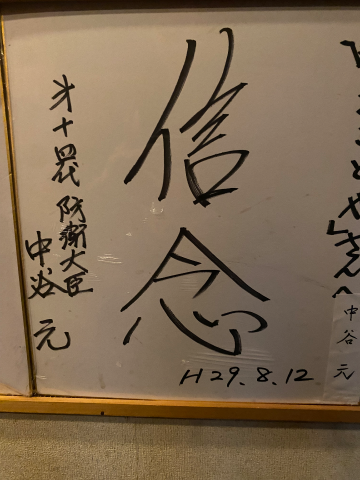 ことやさんへ
信念
第十四代 防衛大臣
中谷 元
H29.8.12
中谷 元